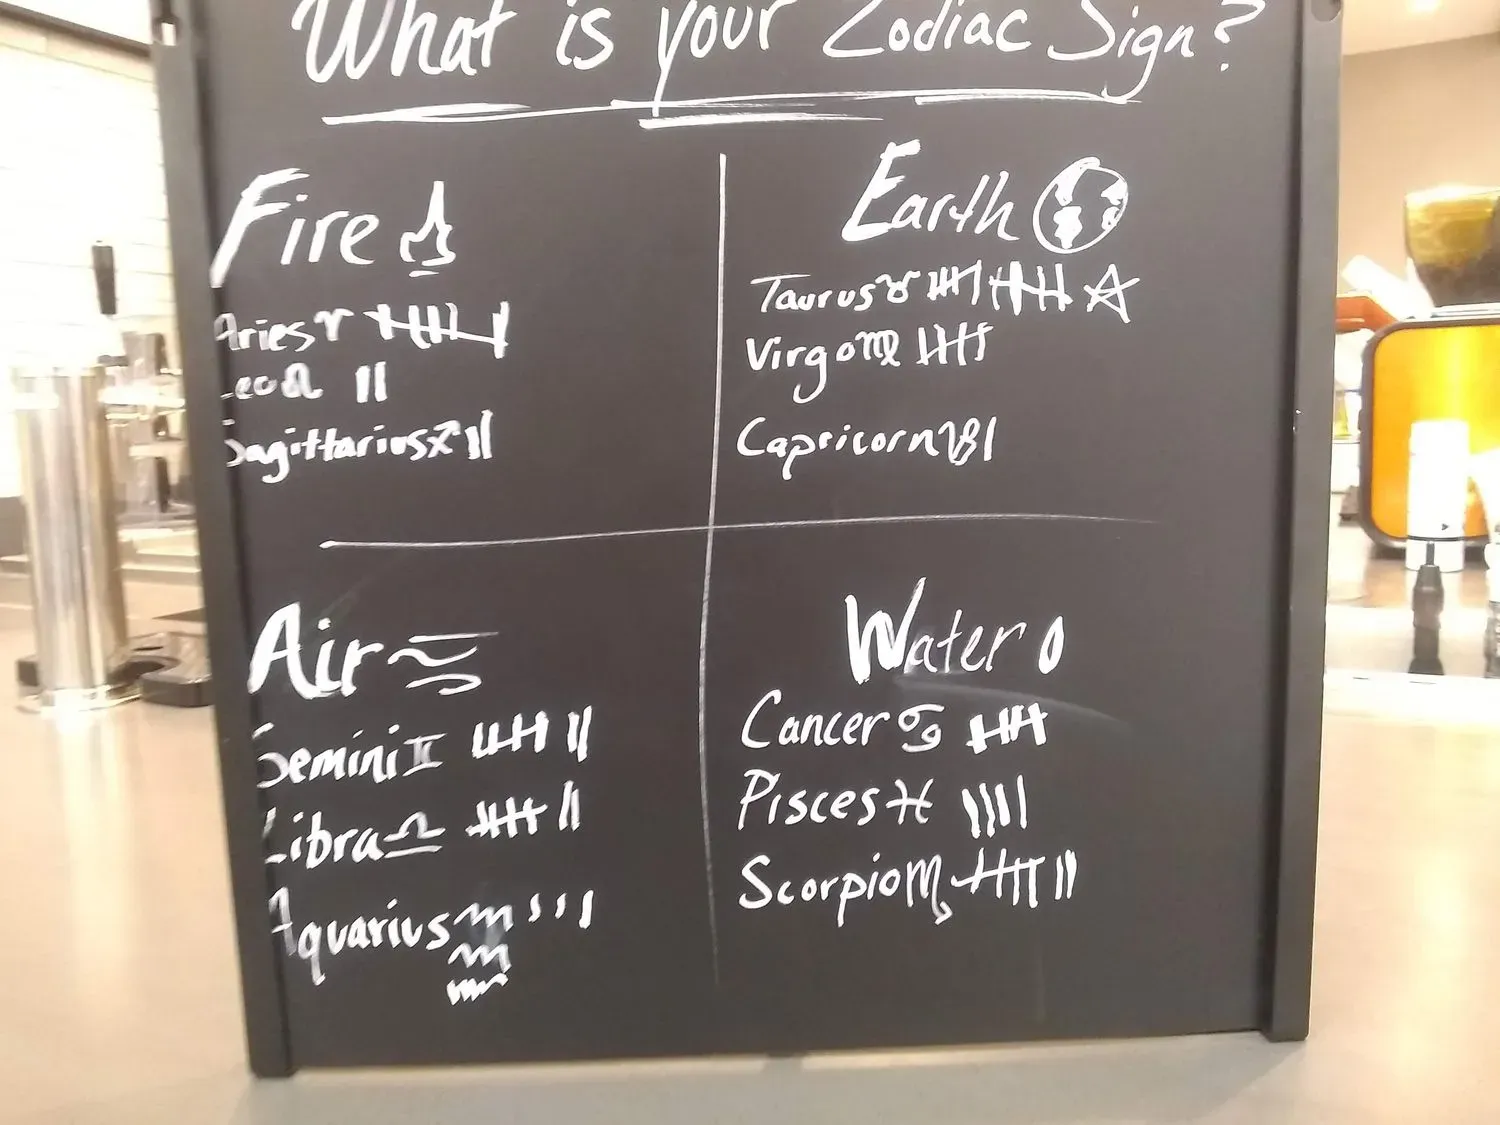 What is your Zodiac Sign?
Fire
Aries ♈
Leo ♌
Sagittarius ♐
Earth
Taurus ♉
Virgo ♍
Capricorn ♑
Air
Gemini ♊
Libra ♎
Aquarius
Water
Cancer ♋
Pisces ♓
Scorpio ♏